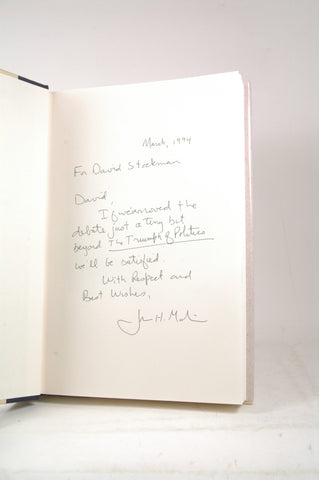 March, 1994
For David Stockman
David,
If we moved the
debate just a tiny bit
beyond The Triumph of Politics
we'll be satisfied.
With Respect and
Best Wishes,
H.